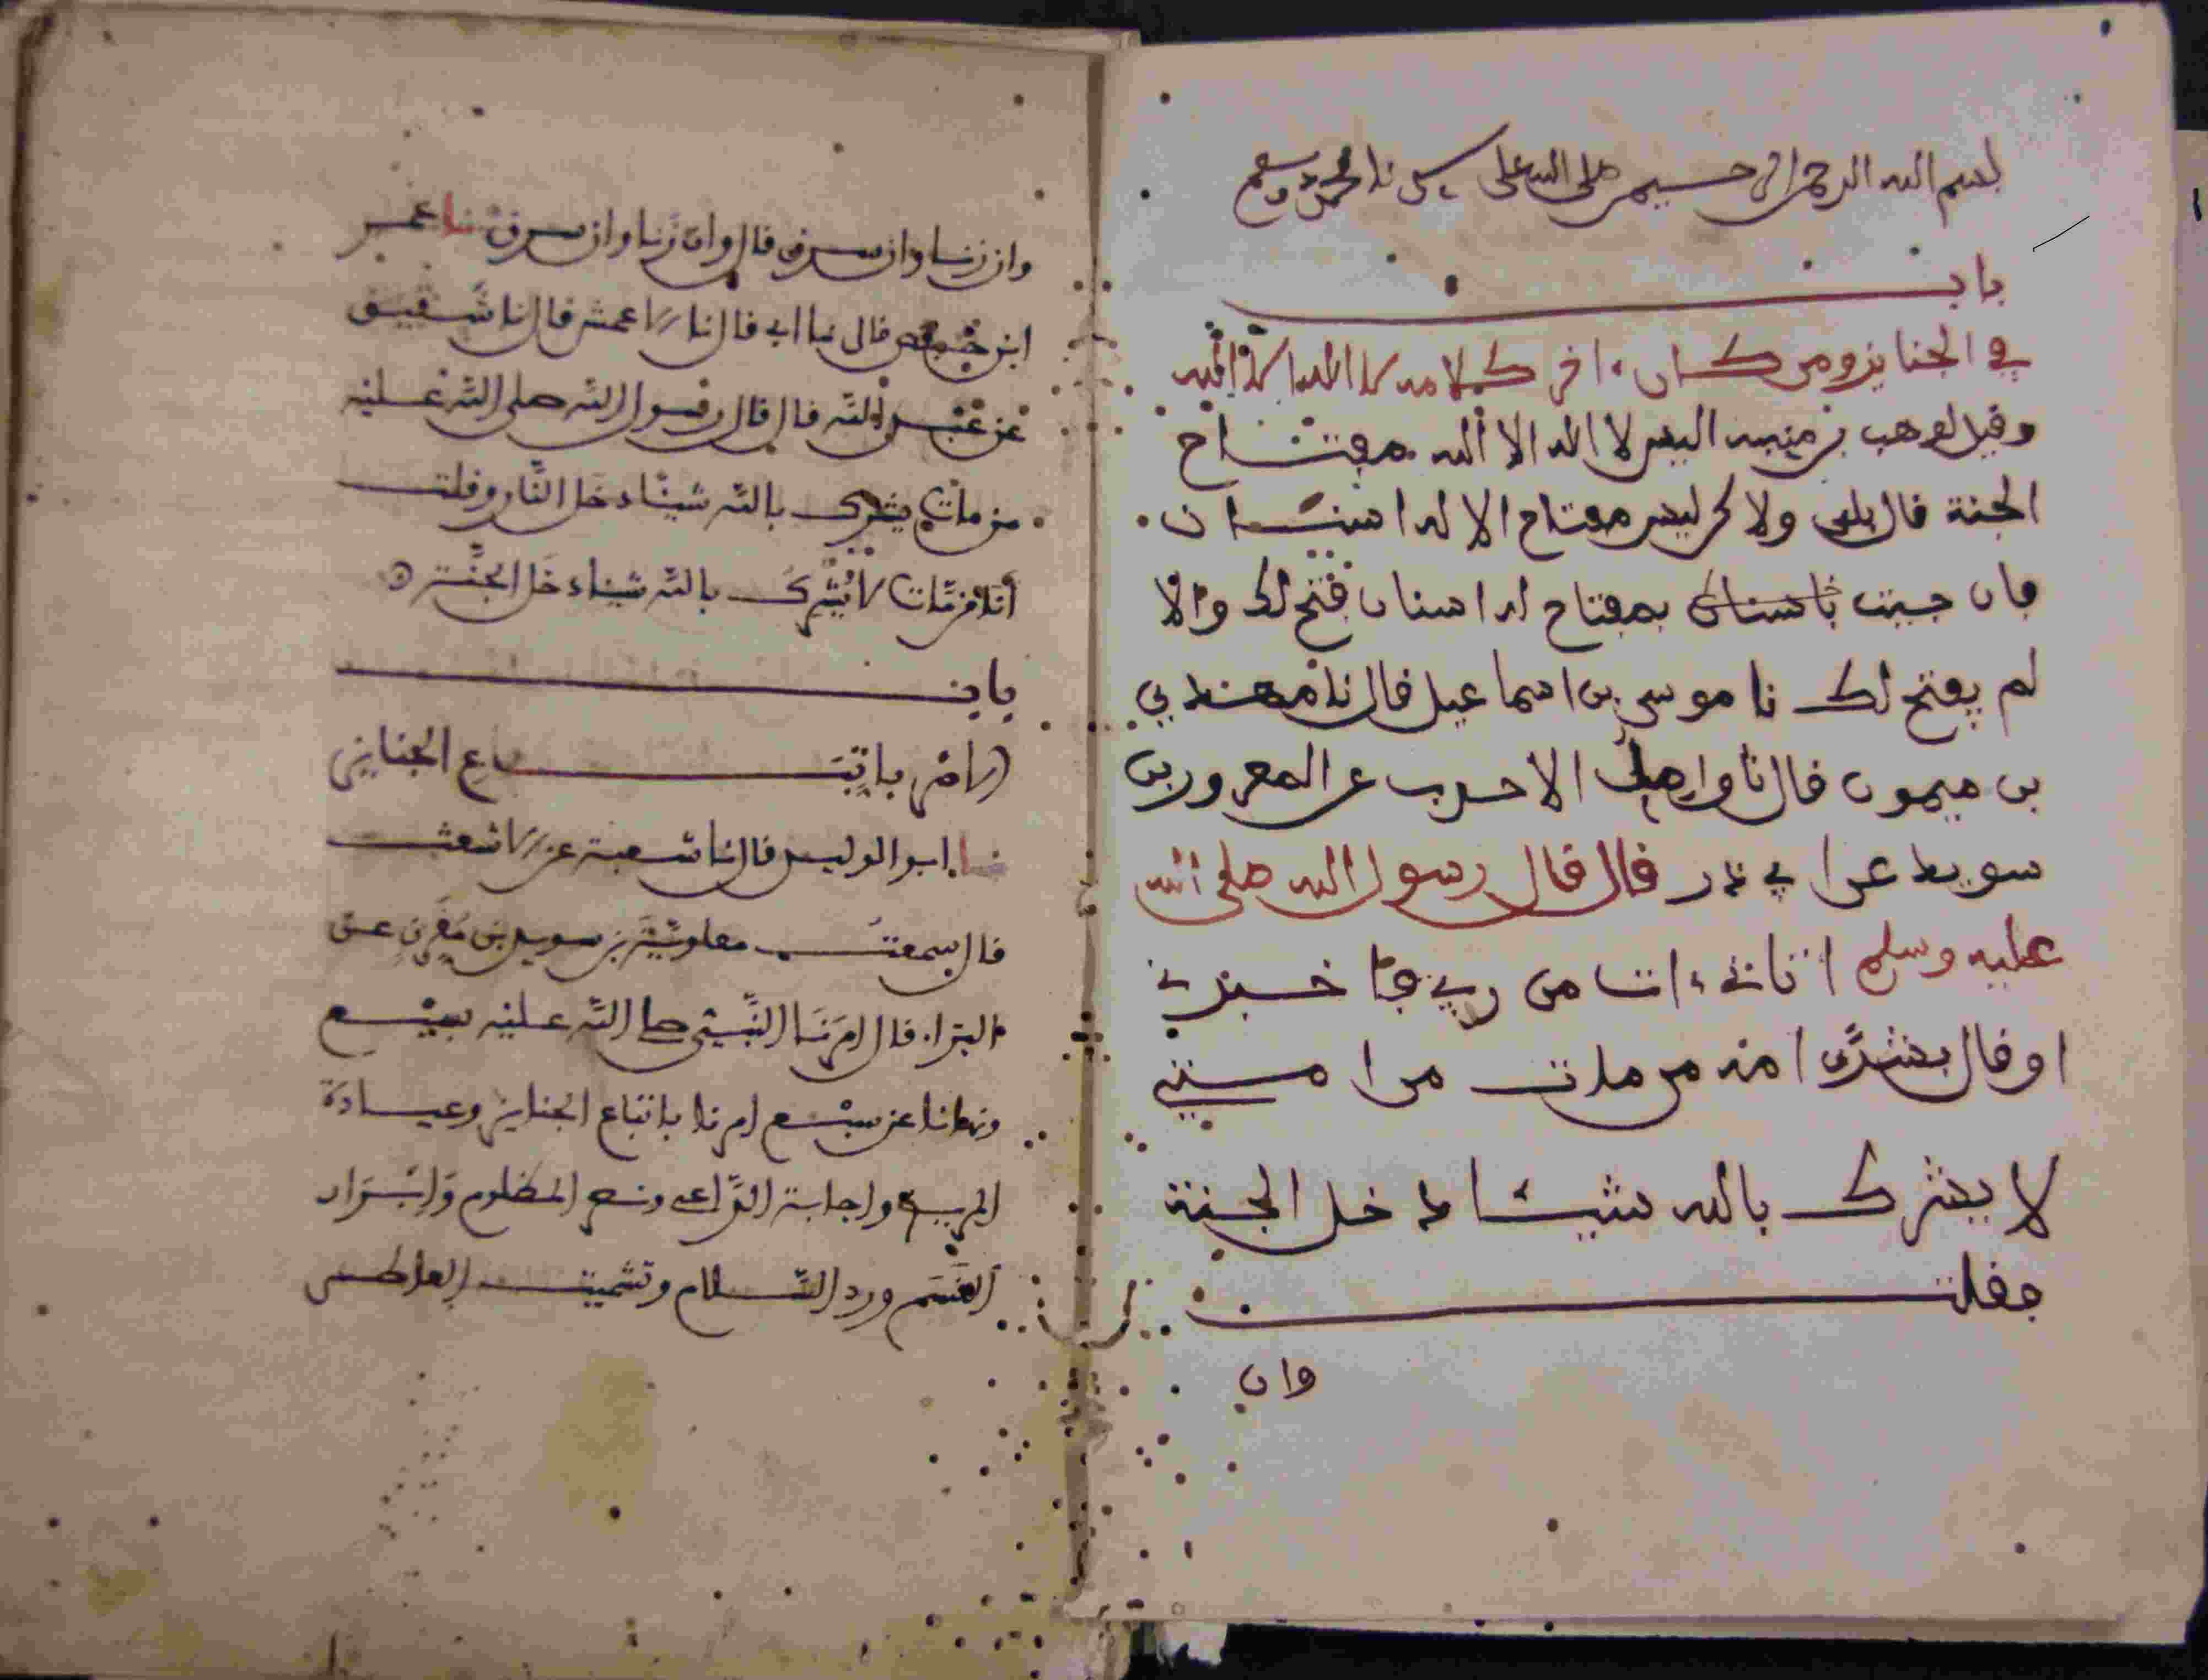 بسم الله الرحمن الرحيم صلى الله على سيدنا محمد
باب
في الجنايز ومن كان ءاخر كلامه لا اله الا الله
وقيل لوهب بن منبه اليس لا اله الا الله مفتاح
الجنة قال بلى ولاكن ليس مفتاح الا له اسنان
فان جيت باسنان بمفتاح له اسنان فتح لك والا
لم يفتح لك نا موسى بن اسماعيل قال نا مهدي
بن ميمون قال نا واصل الاحدب عن المعرور بن
سويد عن ابي ذر قال قال رسول الله صلى الله
عليه وسلم اتاني ءات من ربي فاخبرني
او قال بشرني انه من مات من امتي
لا يشرك بالله شيئا دخل الجنة
فقلت
وان
وان زنا وان سرق قال وان زنا وان سرق نا عمر
ابن حفص قال نا ابي قال نا الاعمش قال نا شقيق
عن عبد الله قال قال رسول الله صلى الله عليه
من مات يشرك بالله شيئا دخل النار وقلت
أنا من مات لا يشرك بالله شيئا دخل الجنة
باب
الامر باتباع الجنايز
نا ابو الوليد قال نا شعبة عن الاشعث
قال سمعت معاوية بن سويد بن مقرن عن
البرا قال امرنا النبي صلى الله عليه بسبع
ونهانا عن سبع امرنا باتباع الجنايز وعيادة
المريض واجابة الداعي ونصر المظلوم وابرار
القسم ورد السلام وتشميت العاطس